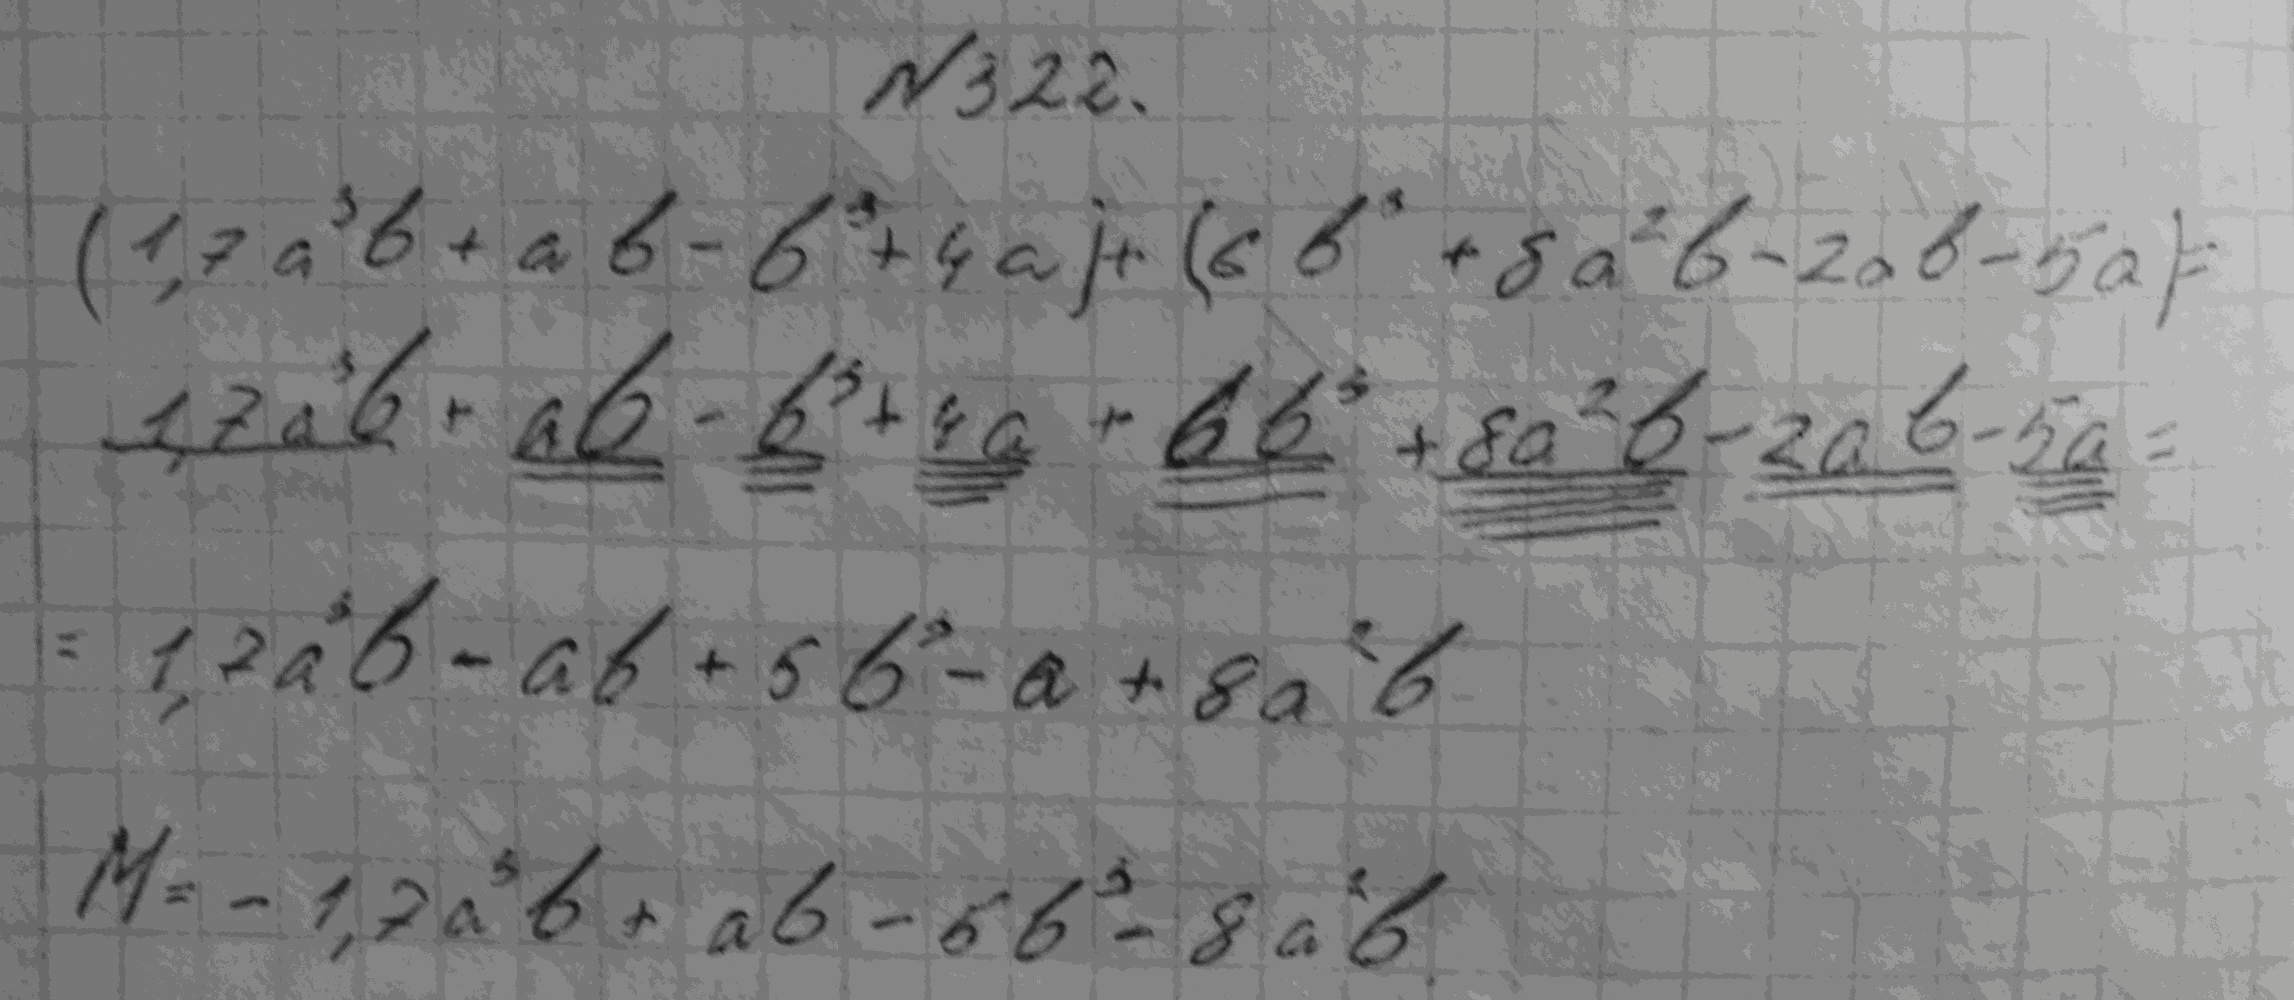 №322.
(1,7a³b + ab - b³ + 4a) + (6b³ + 8a²b - 2ab - 5a) =
1,7a³b + ab - b³ + 4a + 6b³ + 8a²b - 2ab - 5a =
= 1,7a³b - ab + 5b³ - a + 8a²b
M = - 1,7a³b + ab - 5b³ - 8a²b.